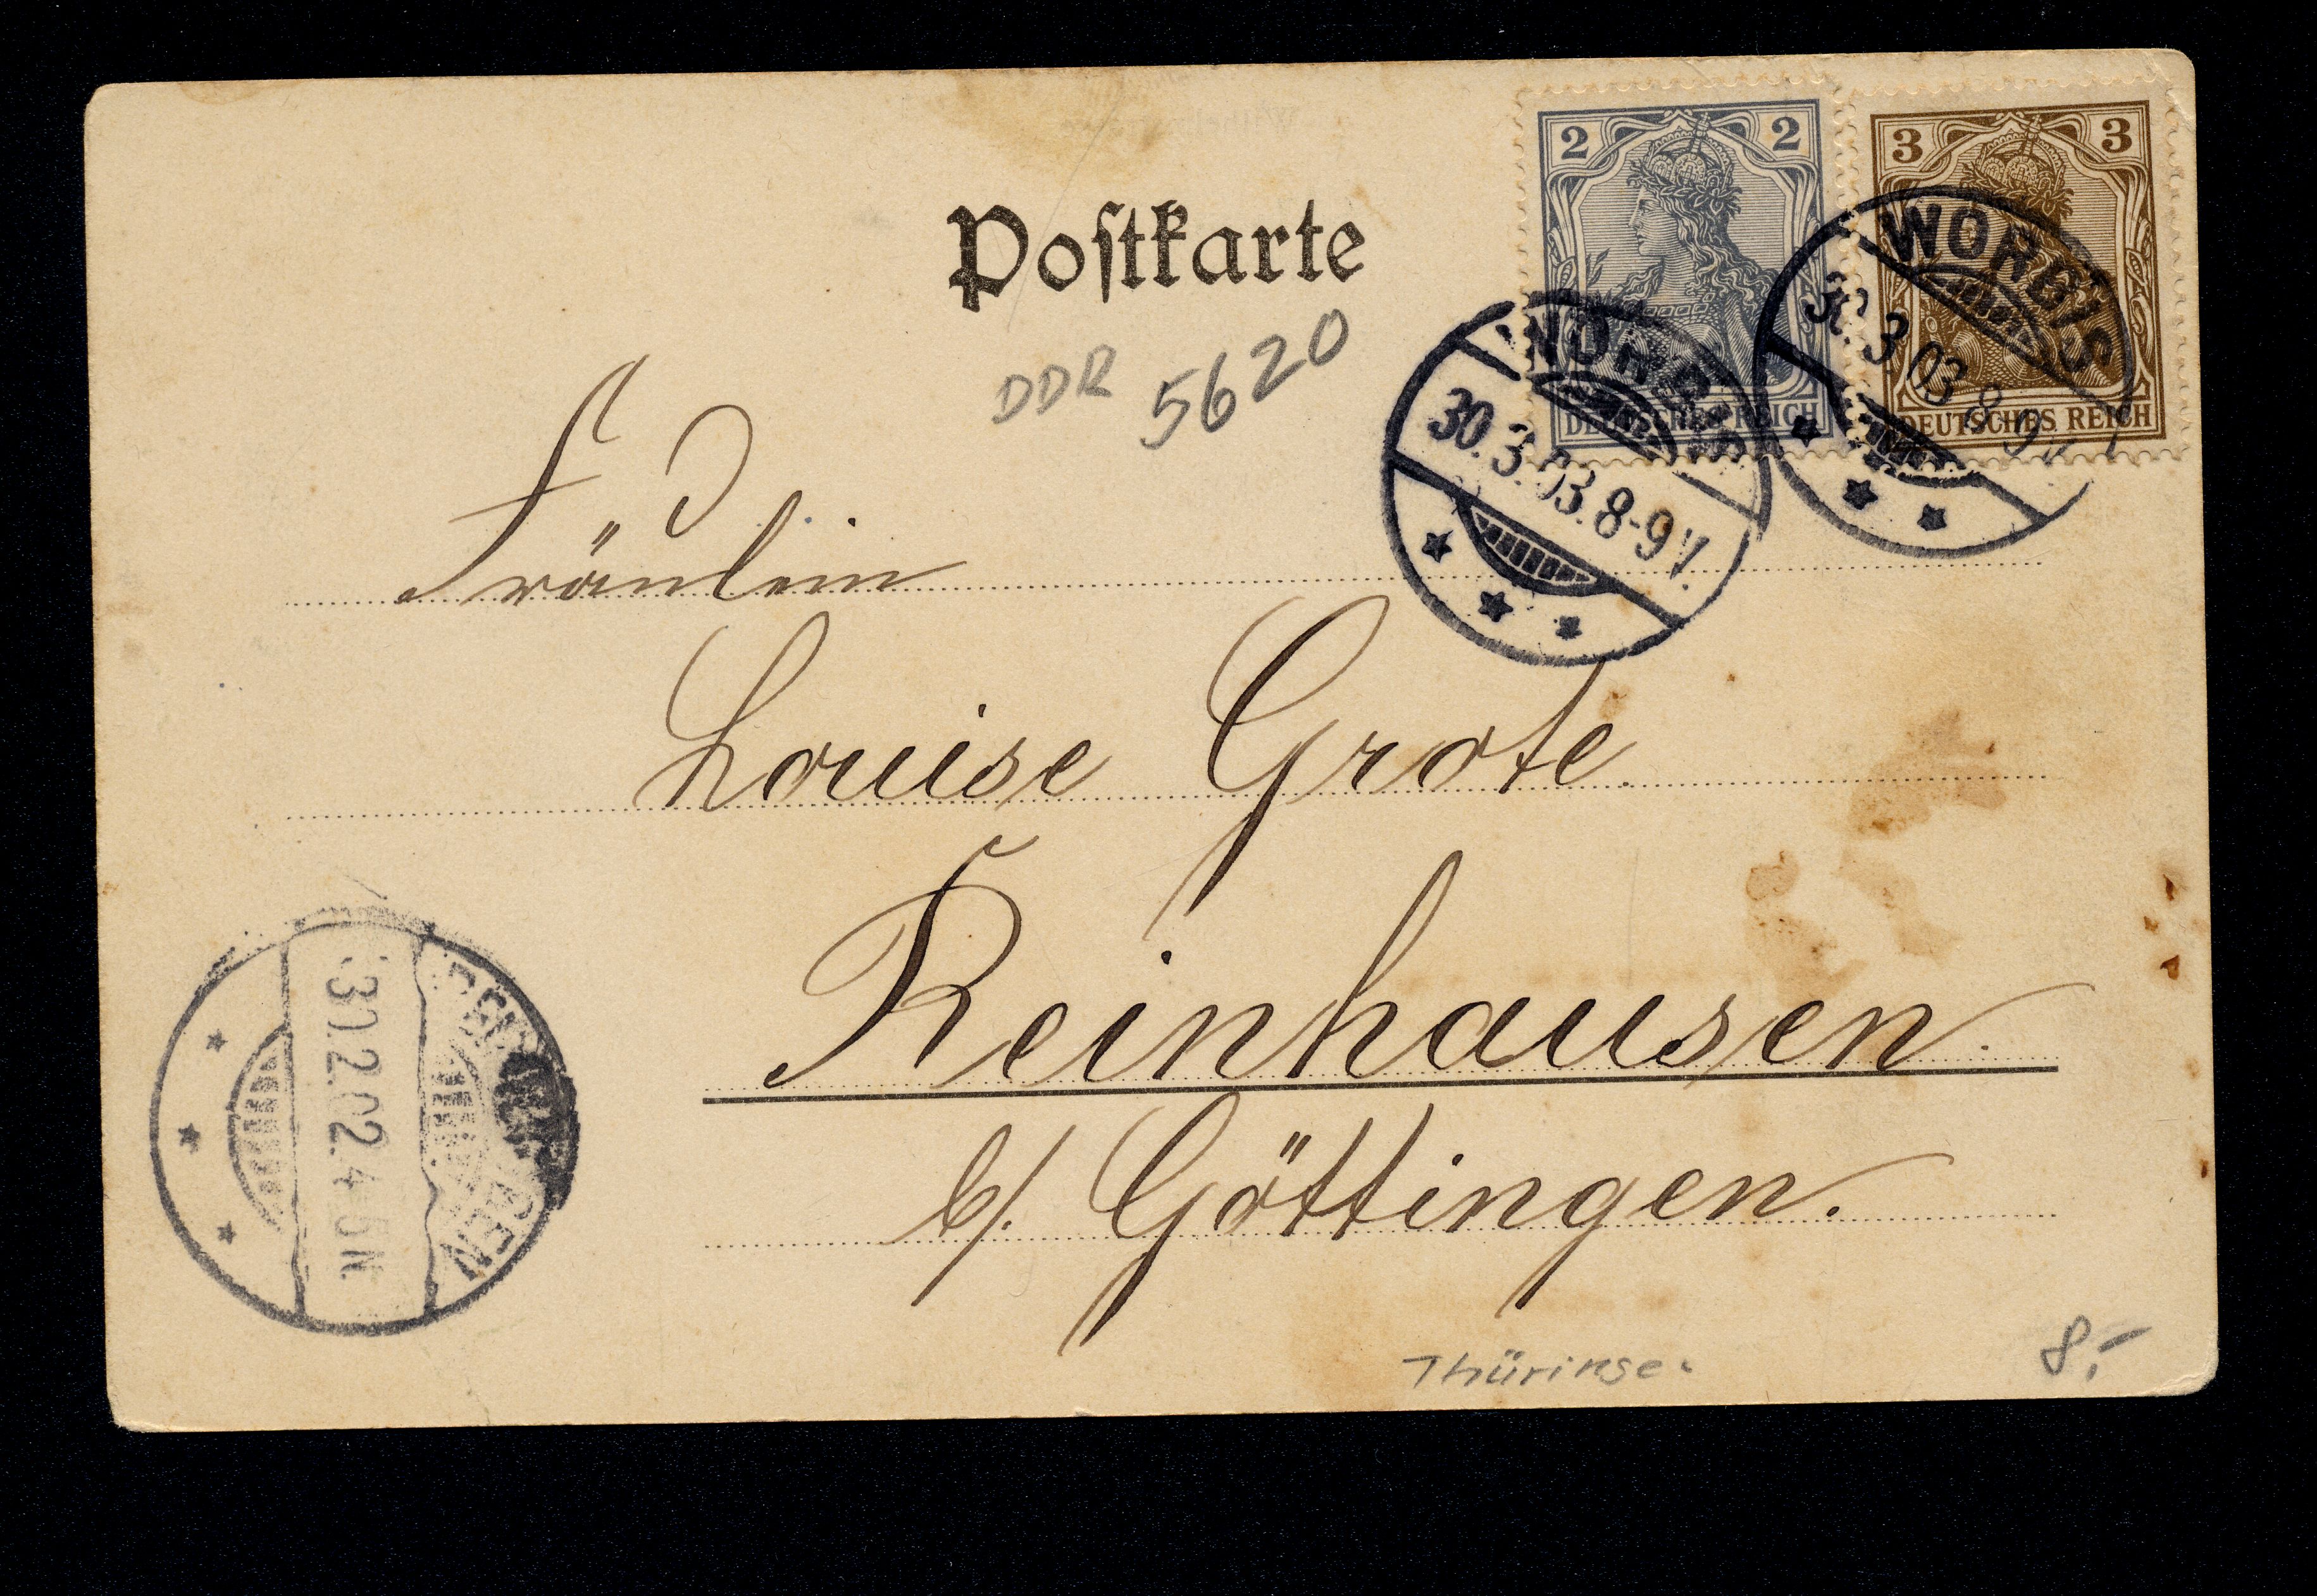 2 2
DEUTSCHES REICH
3 3
DEUTSCHES REICH
WORBIS
30.3.03.8-9V.
WORBIS
30.3.03.8-9V.
Postkarte
DDR 5620
Fräulein
Louise Grote.
Reinhausen.
b/. Göttingen.
Thüringen
8,-